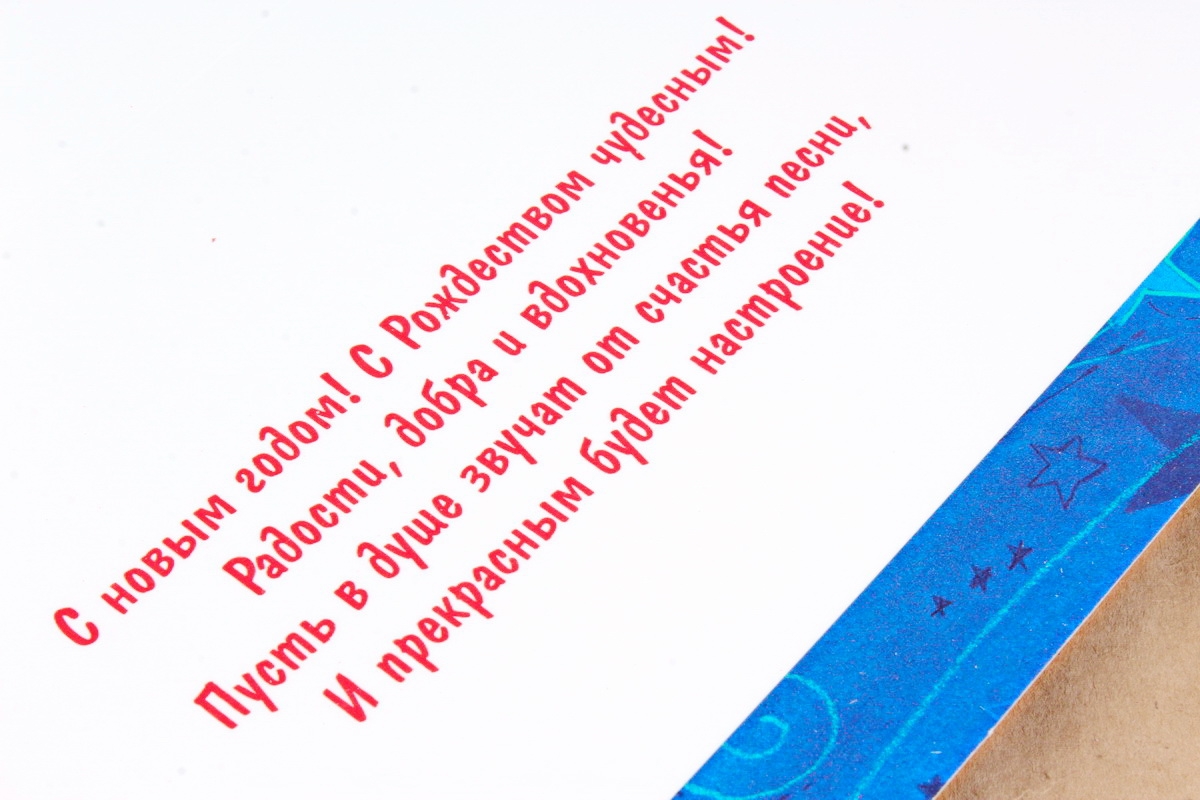 С новым годом! С Рождеством чудесным!
Радости, добра и вдохновенья!
Пусть в душе звучат от счастья песни,
И прекрасным будет настроение!